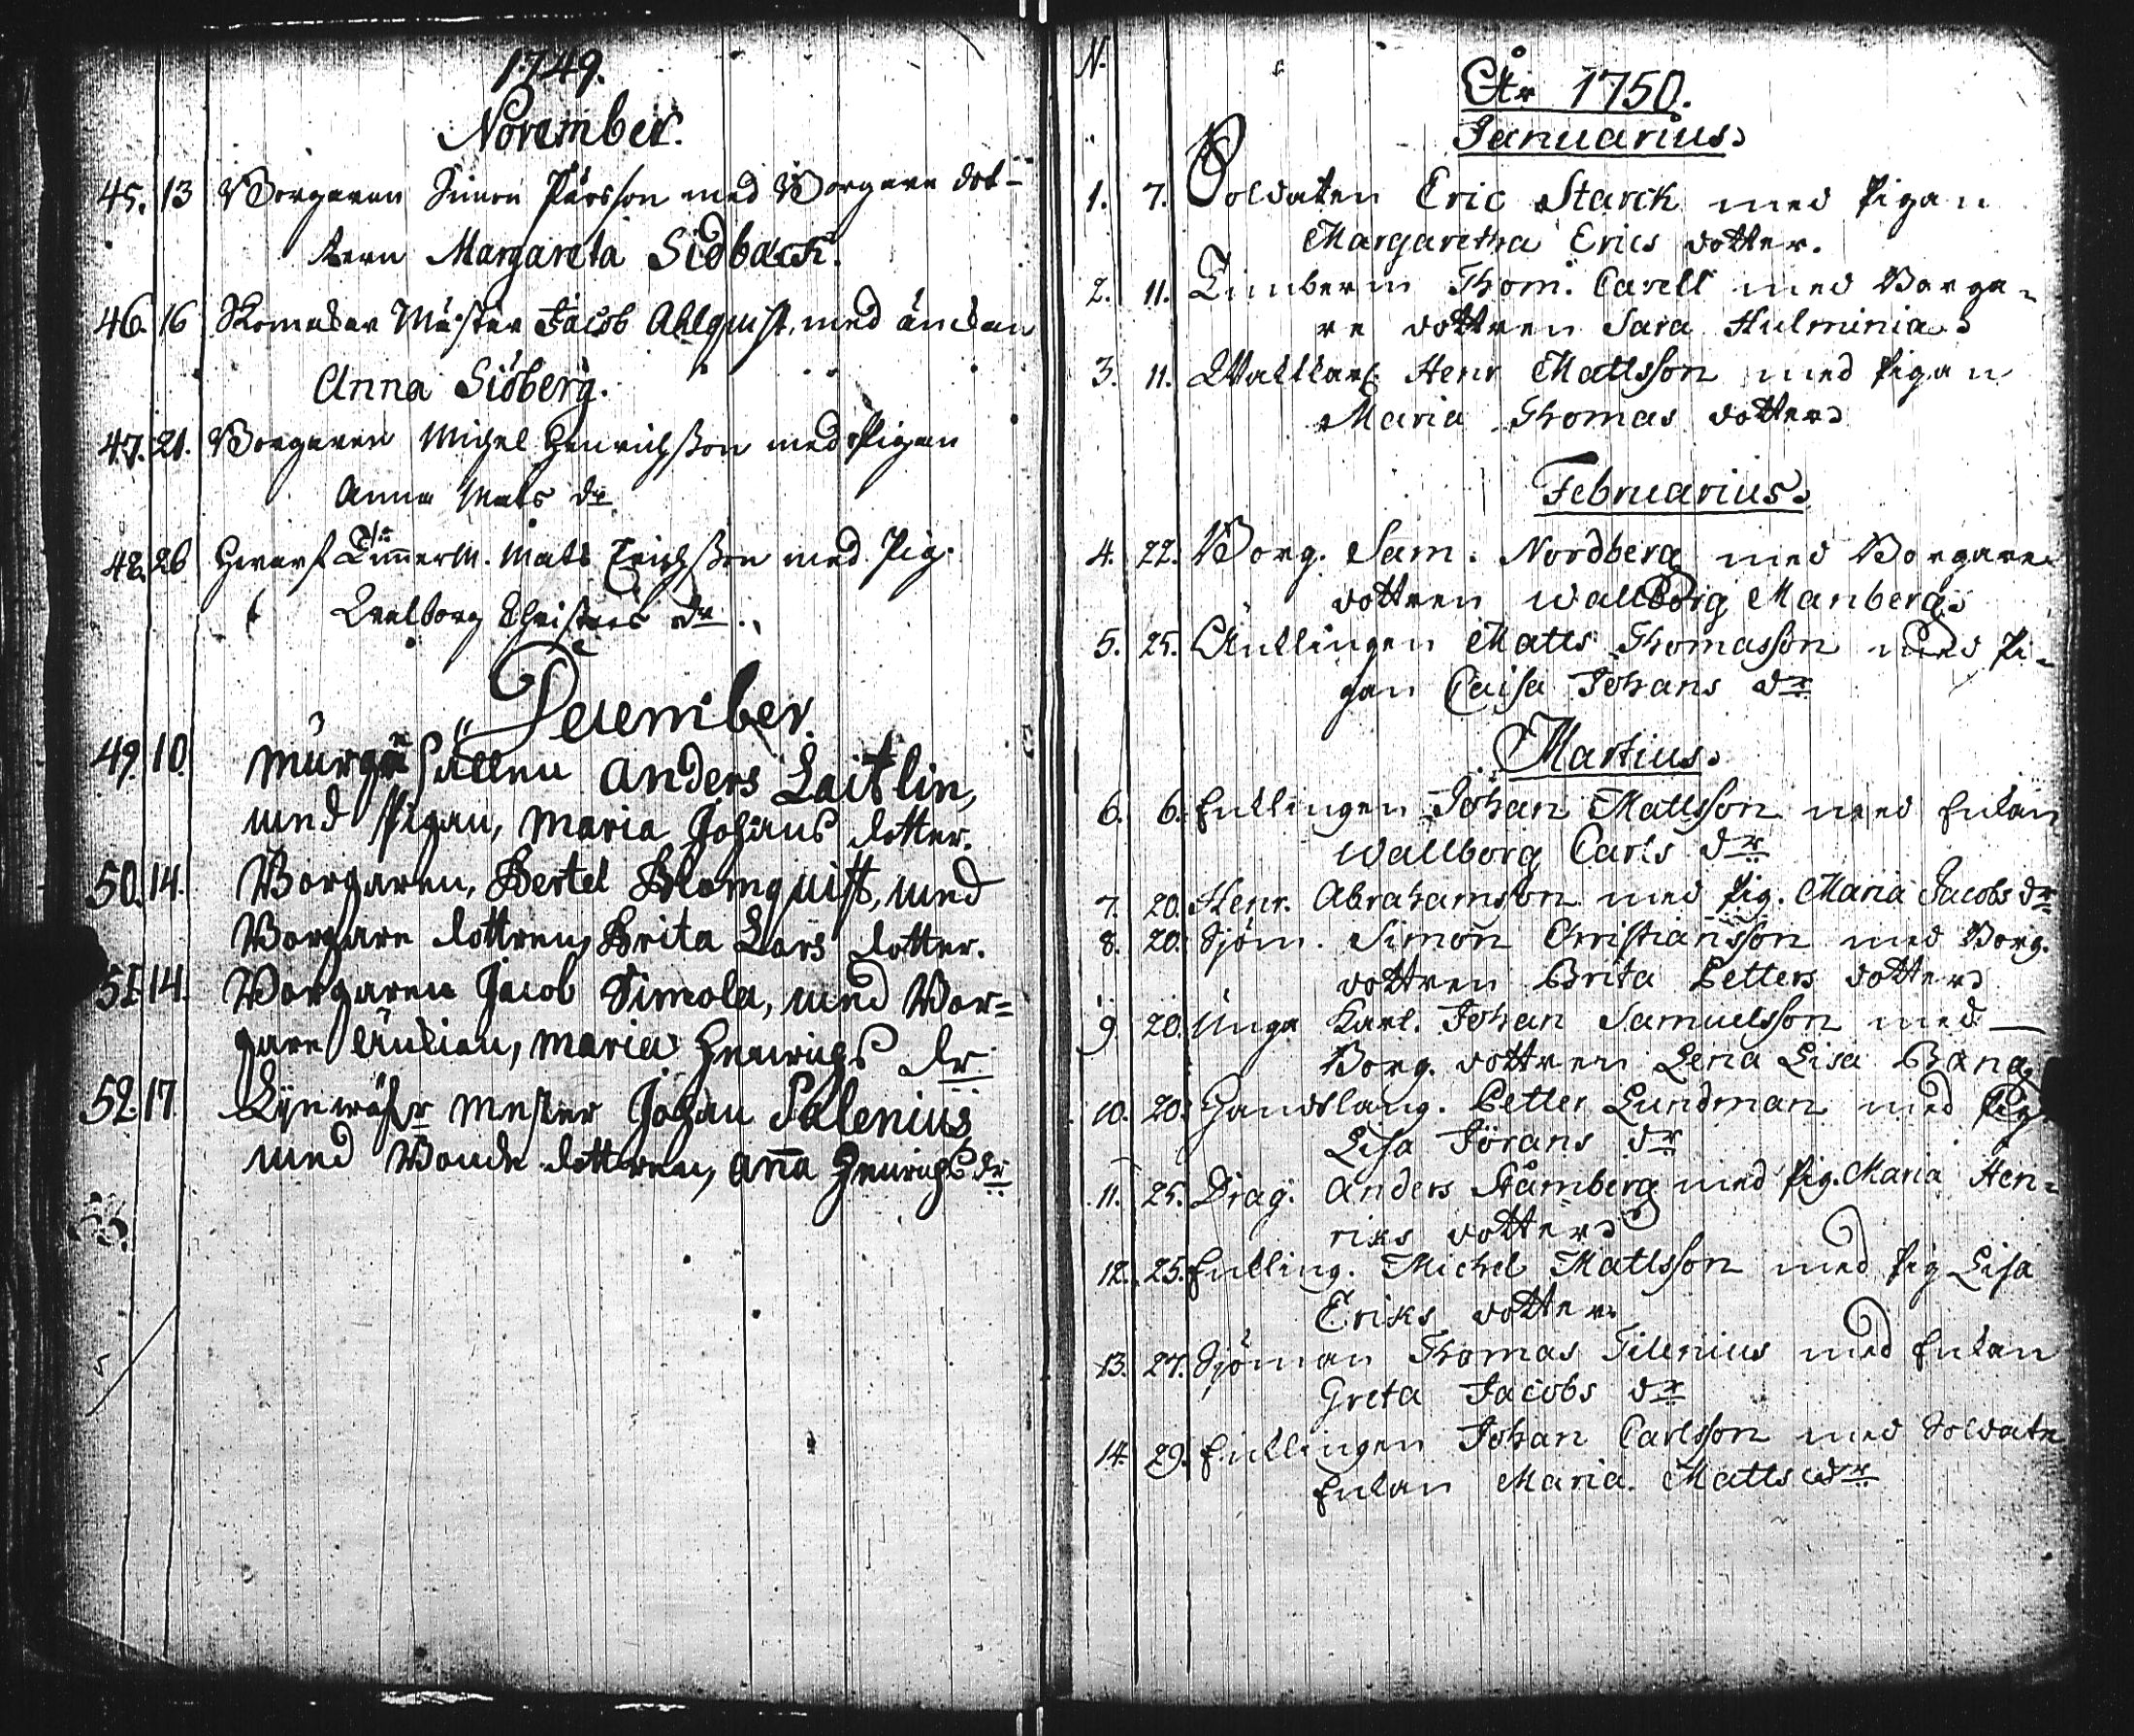 1749.
November.
45. 13 Borgaren Simon Pärsson med Borgare dot-
tern Margareta Sidbäck.
46. 16 Skomakar Mäster Jacob Ahlquist, med änckan
Anna Siöberg.
47. 21. Borgaren Michel Henrichsson med Pigan
Anna Mats dr
48. 26 Timmerm. Mats Erichsson med Pig.
Walborg Christers dr.
December.
49. 10. Murgesällen Anders Laitlin,
med Pigan, Maria Johans dotter.
50. 14. Borgaren, Bertel Blomquist, med
Borgare dottren, Brita Lars dotter.
51. 14. Borgaren Jacob Simola, med Bor=
gare Änkian, Maria Henrichs dr.
52. 17. mester Johan Salenius
med Bonde dottren, Anna Henrichs dr
N.
År 1750.
Januarius.
1. 7. Soldaten Eric Starck med Pigan
Margaretha Erics dotter.
2. 11. Timberm Thom. Carell med Borga-
re dottren Sara Hulminia.
3. 11. Henr Mattsson med Pigan
Maria Thomas dotter
Februarius.
4. 22. Borg. Sam. Nordberg med Borgare
dottren Wallborg Manbergs
5. 25. Änklingen Matts Thomasson med Pi-
gan Caisa Johans dr
Martius.
6. 6. Enklingen Johan Mattsson med Enkan
Wallborg Carls dr
7. 20. Henr. Abrahamsson med Pig. Maria Jacobs dr
8. 20. Sjöm. Simon Christiansson med Borg.
dottren Brita Petters dotter
9. 20. Unga Karl. Johan Samuelsson med
Borg. dottren Lena Lisa Bang
10. 20. Handtlang. Petter Lundman med Pig.
Lisa Jörans dr
11. 25. Drag. Anders Stårnberg med Pig. Maria Hen-
riks dotter
12. 25. Enkling. Michel Mattsson med Pig Lisa
Eriks dotter
13. 27. Sjöman Thomas Tilenius med Enkan
Greta Jacobs dr
14. 29. Enklingen Johan Carlsson med Soldate
Enkan Maria Matts dr